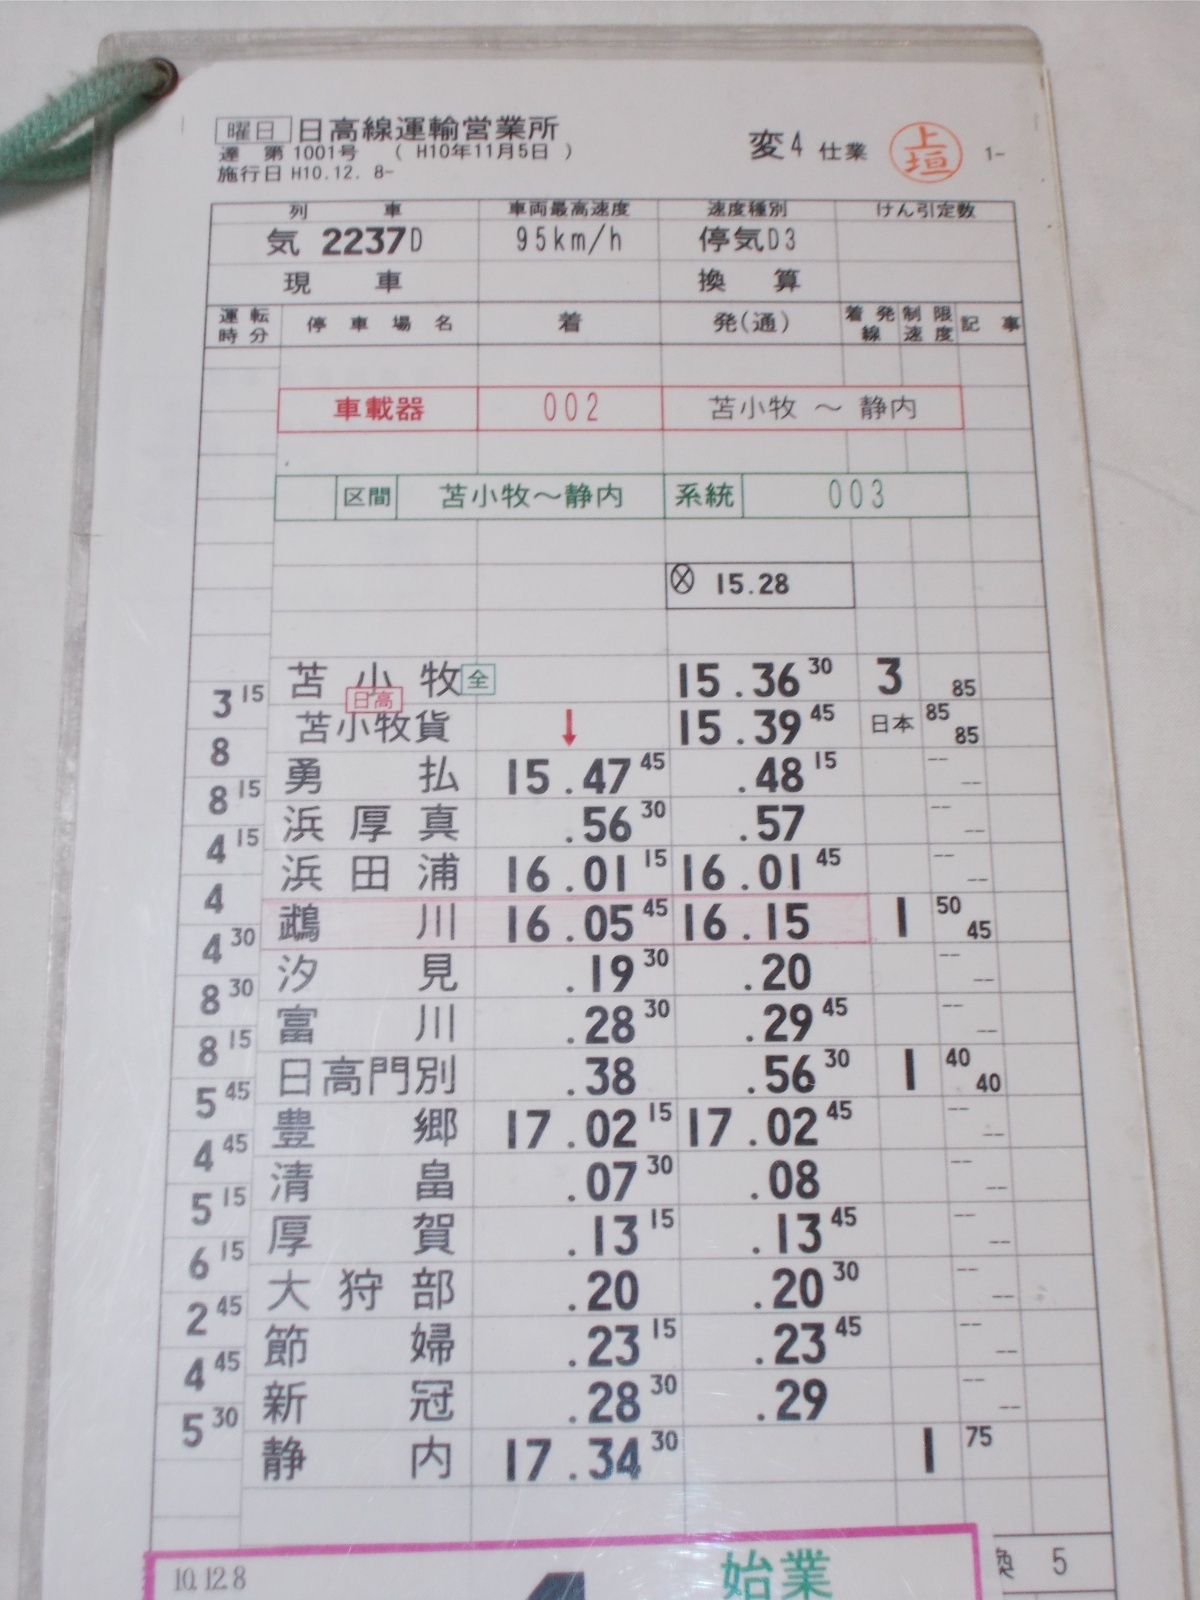 曜日 日高線運輸営業所
達 第1001号 ( H10年11月5日 )
施行日 H10.12. 8-
変4 仕業 上垣 1-
列 車 車両最高速度 速度種別 けん引定数
気 2237D 95km/h 停気D3
現 車 換 算
運転時分 停車場名 着 発(通) 着発線 制限速度 記事
車載器 002 苫小牧 ～ 静内
区間 苫小牧～静内 系統 003
⊗ 15.28
苫小牧 全 15.36 30 3 85
3 15
日高
苫小牧貨 ↓ 15.39 45 日本 85 85
8
勇払 15.47 45 .48 15 -- --
8 15
浜厚真 .56 30 .57 -- --
4 15
浜田浦 16.01 15 16.01 45 -- --
4
鵡川 16.05 45 16.15 1 50 45
4 30
汐見 .19 30 .20 -- --
8 30
富川 .28 30 .29 45 -- --
8 15
日高門別 .38 .56 30 1 40 40
5 45
豊郷 17.02 15 17.02 45 -- --
4 45
清畠 .07 30 .08 -- --
5 15
厚賀 .13 15 .13 45 -- --
6 15
大狩部 .20 .20 30 -- --
2 45
節婦 .23 15 .23 45 -- --
4 45
新冠 .28 30 .29 -- --
5 30
静内 17.34 30 1 75
10.12.8 始業
5